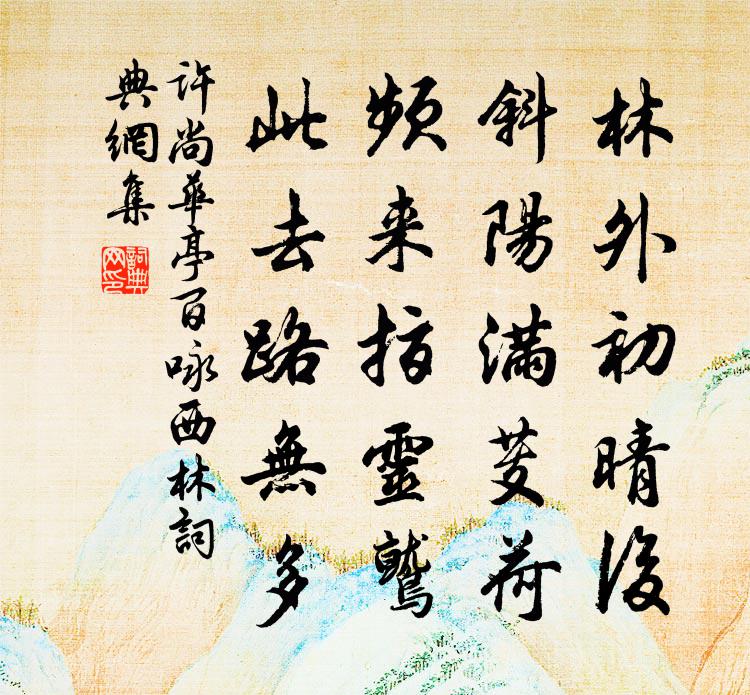 林外初晴後
斜陽滿芰荷
頻来指靈鷲
此去路無多
許尚華亭百咏西林詞
典網集
詞典
网印